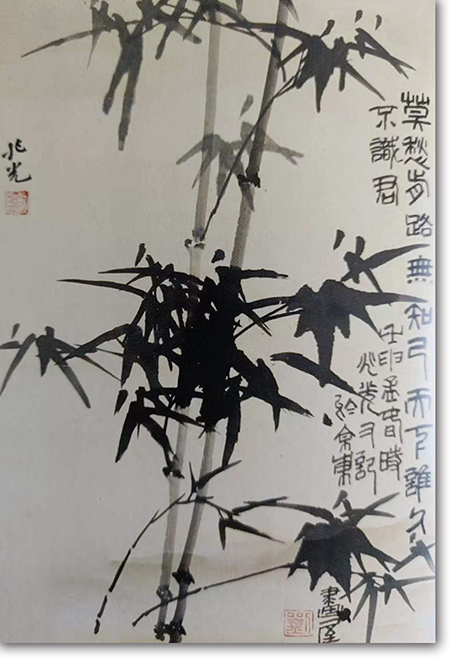 莫愁前路無知己天下誰人
不識君
壬申孟春時
兆光又記
於東
畫屋
兆光